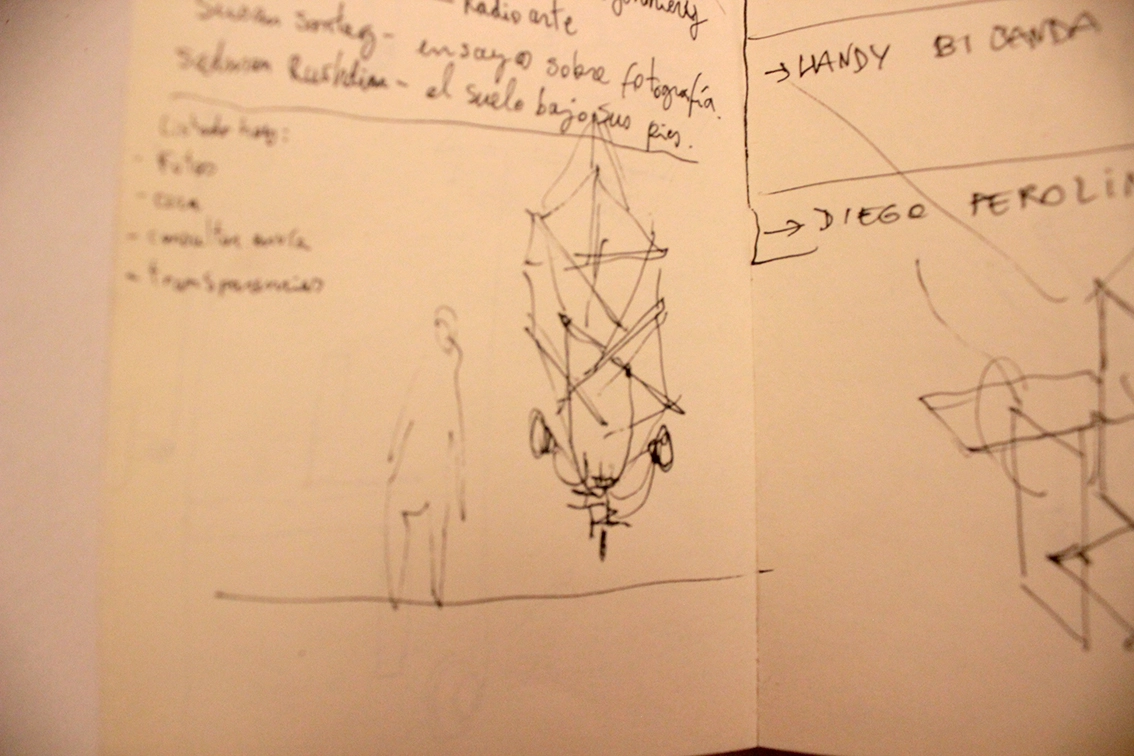 Radio arte
Susan Sontag - ensayos sobre fotografía.
Salman Rushdian - el suelo bajo sus pies.
- Fotos
- casa
- consultar
- transparencias
→ HANDY BI BANDA
→ DIEGO PEROLIN